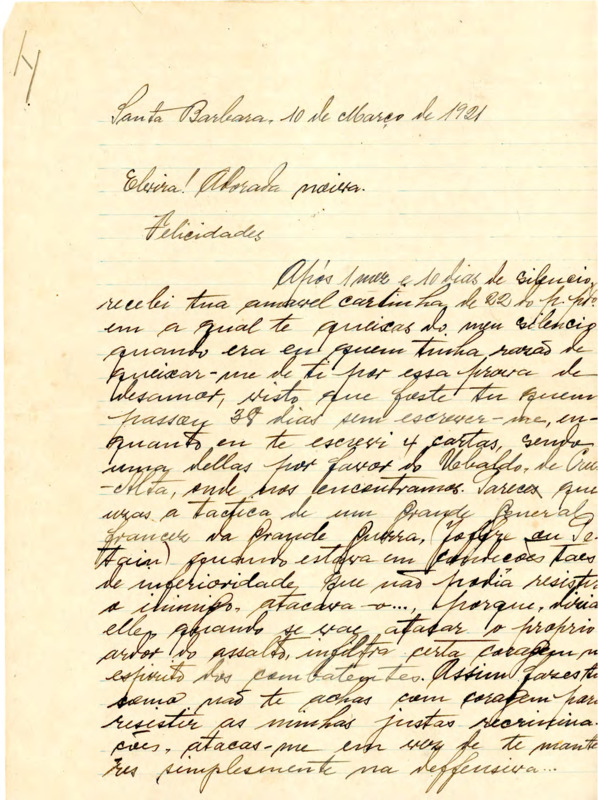 Santa Barbara, 10 de Março de 1921
Elvira! Adorada noiva.
Felicidades
Após 1 mez e 10 dias de silencio,
recebi tua amavel cartinha, de 22 do p.pº
em a qual te queixas do meu silencio
quando era eu quem tinha razão de
queixar-me de ti por essa prova de
desamor, visto que foste tu quem
passou 38 dias sem escrever-me, en-
quanto eu te escrevi 4 cartas, sendo
uma dellas por favor do Ubaldo, de Cruz
-Alta, onde nos encontramos. Parece que
uzas a tactica de um Grande General
francez da Grande Guerra, (Joffre ou Pe-
tain) quando estava em condições taes
de inferioridade que não podia resistir
o inimigo, atacava-o..., porque, dizia
elle, quando se vae atacar o proprio
ardor do assalto, infiltra certa coragem no
espirito dos combatentes. Assim fazes tu
como não te achas com coragem para
resistir as minhas justas recrimina-
ções, atacas-me em vez de te mante
res simplesmente na deffensiva...